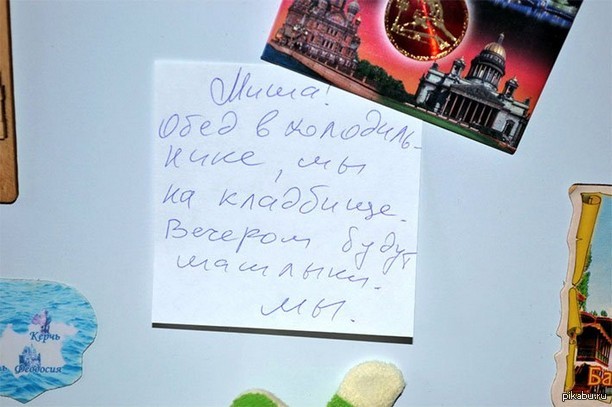 Миша!
Обед в холодиль-
нике, мы
на кладбище.
Вечером будут
шашлыки.
мы.
Керчь
Феодосия
Ба
pikabu.ru